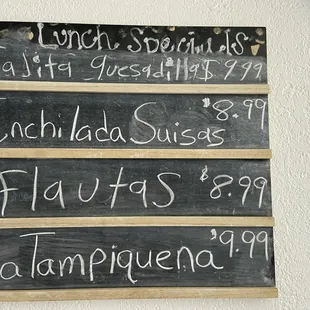 Lunch Specials
ajita Quesadillas $ 9.99
Enchilada Suisas $8.99
Flautas $8.99
a Tampiquena $9.99